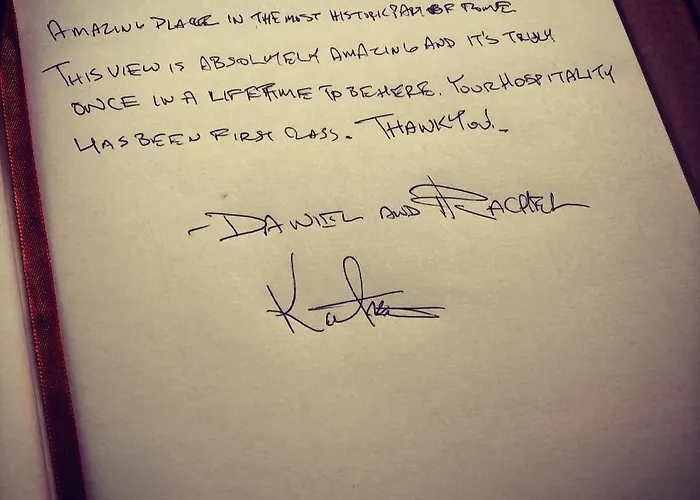 AMAZING PLACE IN THE MOST HISTORIC PART OF ROME
THIS VIEW IS ABSOLUTELY AMAZING AND IT'S TRULY
ONCE IN A LIFETIME TO BE HERE. YOUR HOSPITALITY
HAS BEEN FIRST CLASS. THANK YOU!
- DANIEL AND RACHEL